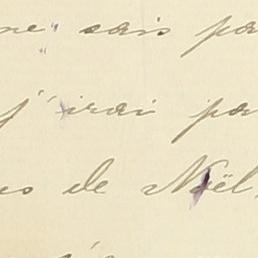 ne sais pa
j'irai pa
es de Noël,